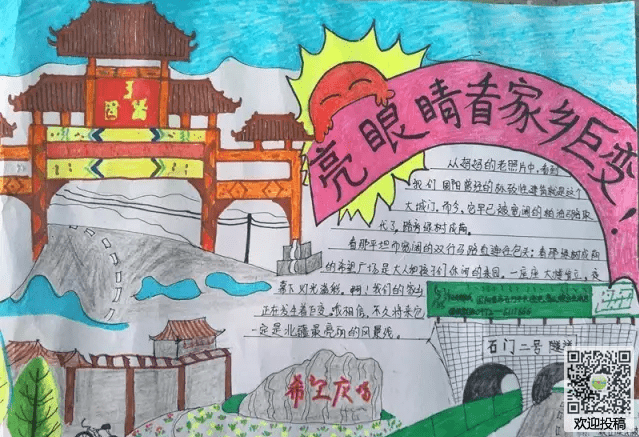 亮眼睛看家乡巨变!
从妈妈的老照片中,看到
我们固阳最早的标致性建筑就是这个
大城门,而今,它早已被宽阔的柏油马路取
代了,路旁绿树成荫。
看那平坦而宽阔的双行马路直通包头;看那绿树成荫
的希望广场是大人和孩子们休闲的乐园,一座座大楼耸立,夜
景下灯光
啊!我们的家乡
正在发生着巨变,我相信,不久将来它
一定是北疆最亮丽的风景线。
希望广场
石门二号 隧道
欢迎投稿